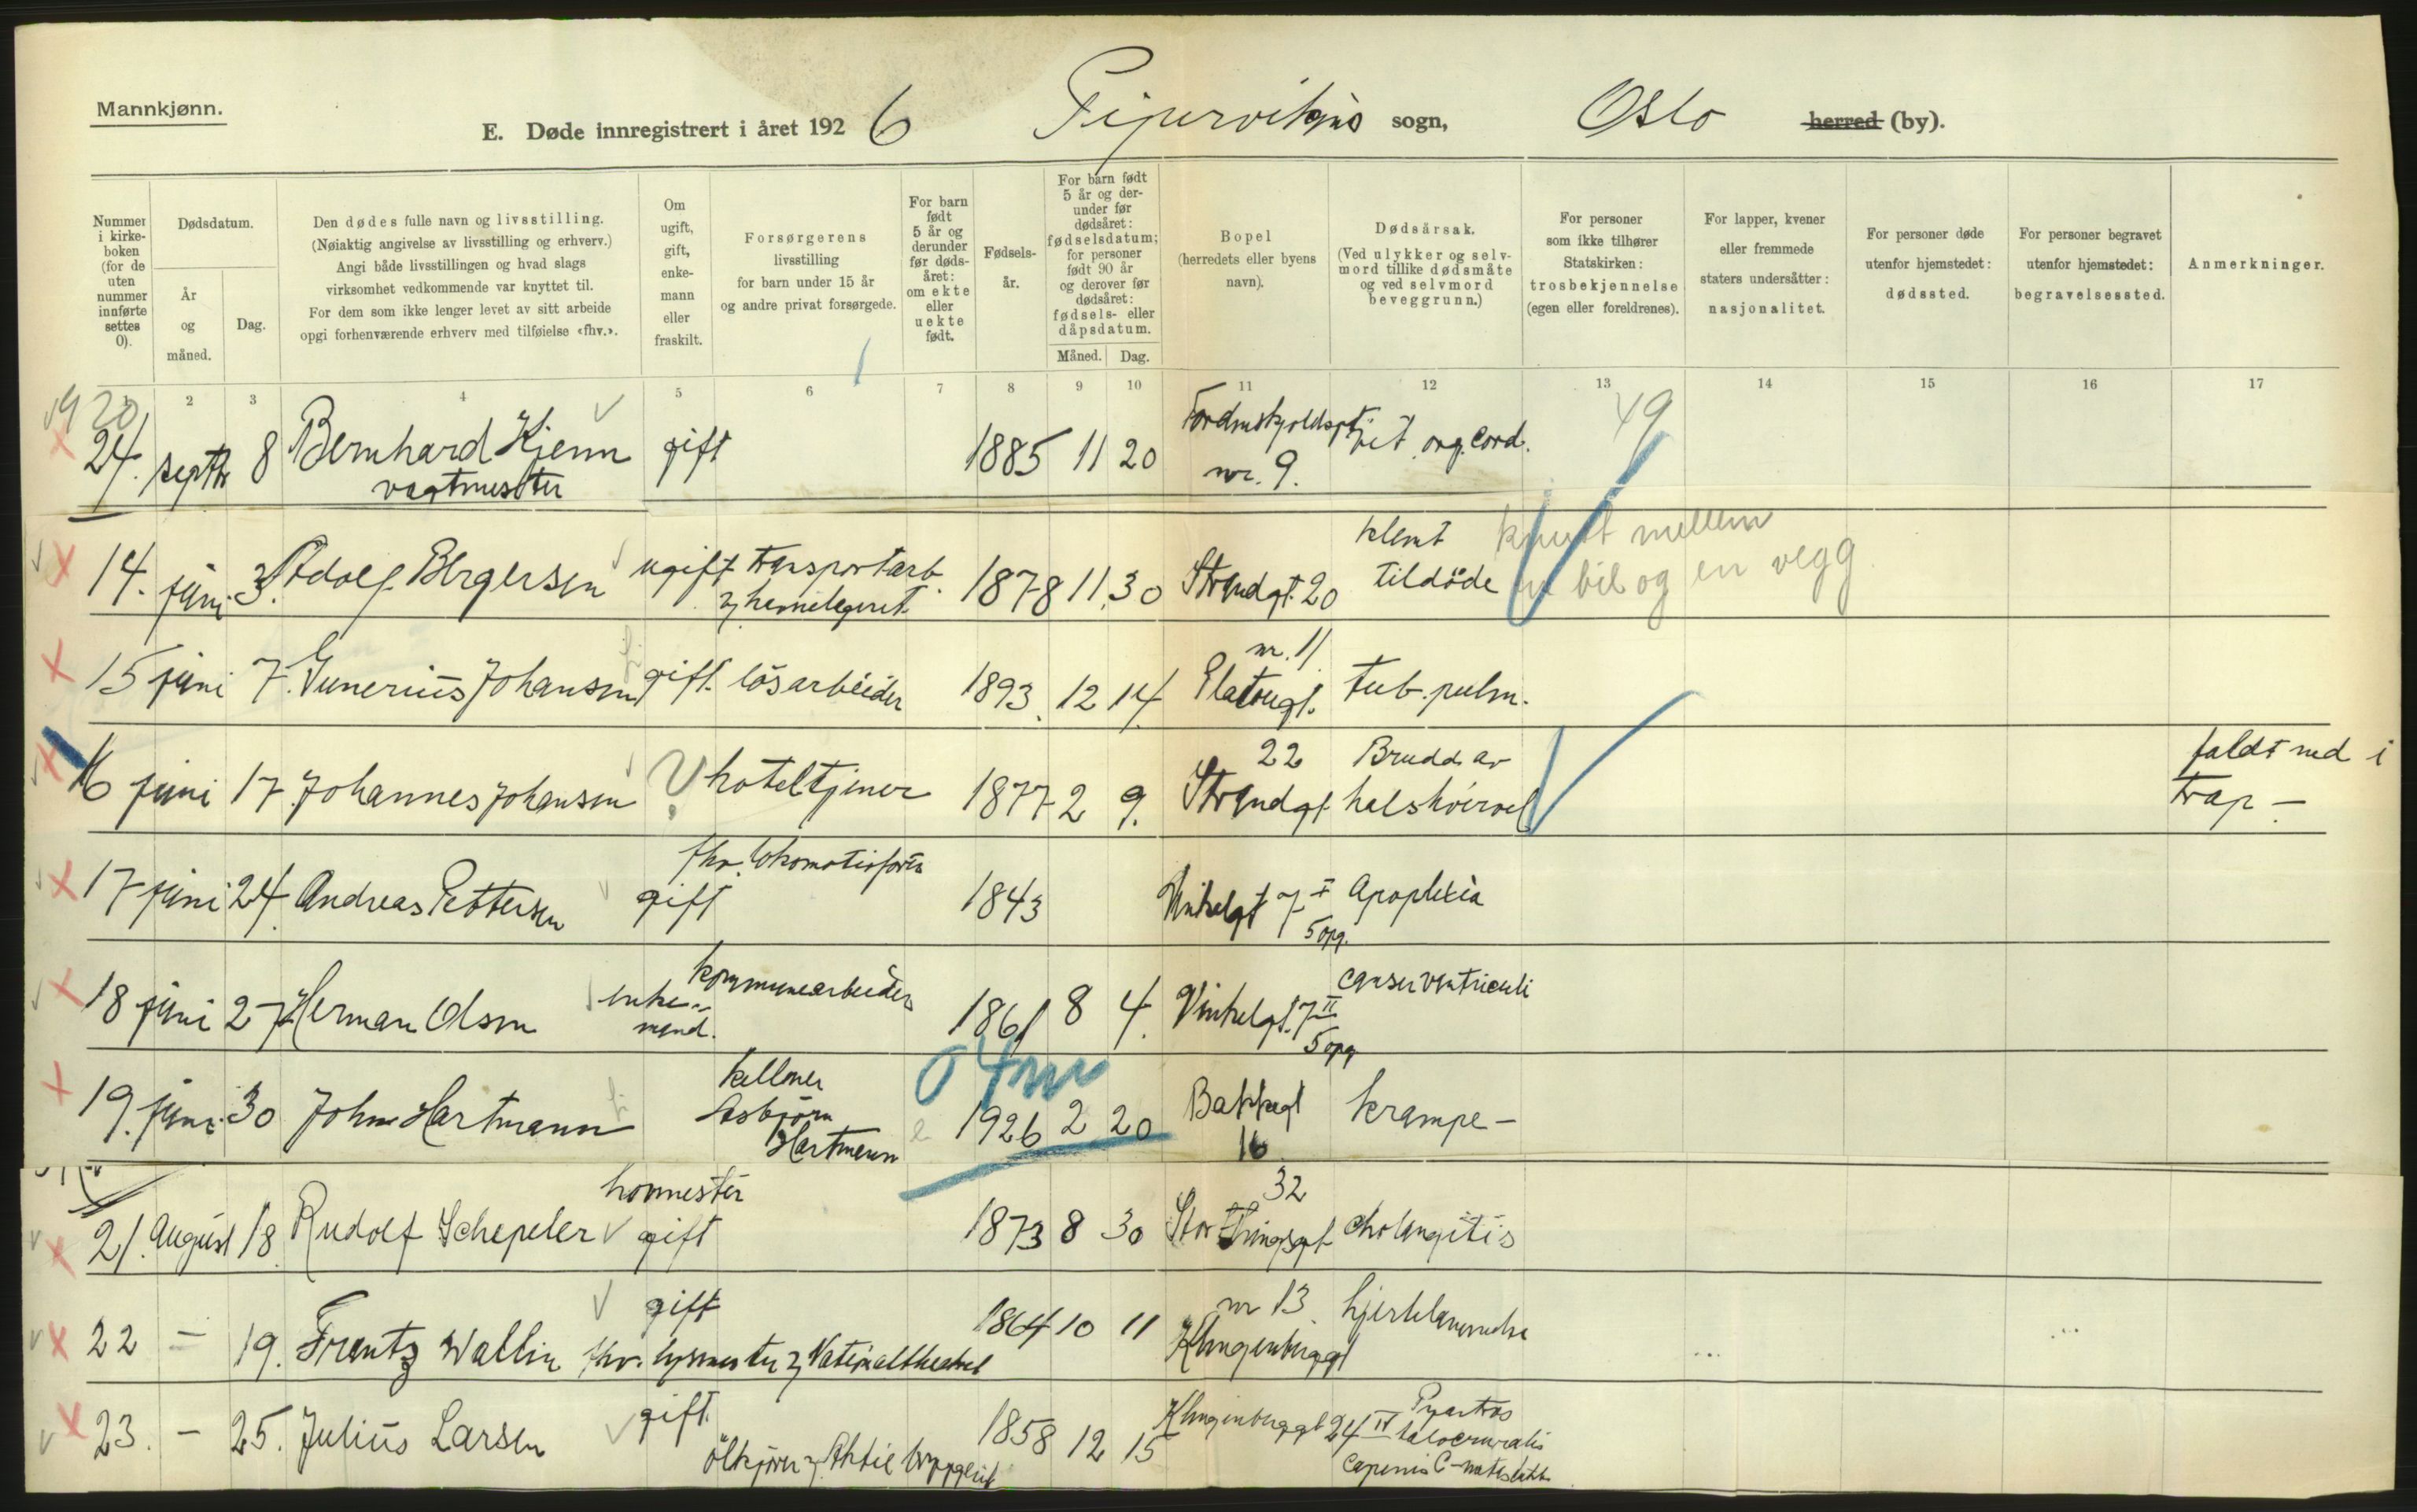 Mannkjønn.
E. Døde innregistrert i året 1926 Pipervikens sogn, Oslo herred (by).
Nummer i kirke-boken (for de uten nummer innførte settes 0).
Dødsdatum.
År og måned.
Dag.
Den dødes fulle navn og livsstilling.
(Nøiaktig angivelse av livsstilling og erhverv.)
Angi både livsstillingen og hvad slags
virksomhet vedkommende var knyttet til.
For dem som ikke lenger levet av sitt arbeide
opgi forhenværende erhverv med tilføielse «fhv.».
Om ugift, gift, enke-mann eller fraskilt.
Forsørgerens
livsstilling
for barn under 15 år
og andre privat forsørgede.
For barn født 5 år og derunder før døds-året: om ekte eller uekte født.
Fødsels-år.
For barn født 5 år og der-under før dødsåret: fødselsdatum; for personer født 90 år og derover før dødsåret: fødsels- eller dåpsdatum.
Måned. Dag.
Bopel
(herredets eller byens
navn).
Dødsårsak.
(Ved ulykker og selv-
mord tillike dødsmåte
og ved selvmord
beveggrunn.)
For personer
som ikke tilhører
Statskirken:
trosbekjennelse
(egen eller foreldrenes).
For lapper, kvener
eller fremmede
staters undersåtter:
nasjonalitet.
For personer døde
utenfor hjemstedet:
dødssted.
For personer begravet
utenfor hjemstedet:
begravelsessted.
Anmerkninger.
1 2 3 4 5 6 7 8 9 10 11 12 13 14 15 16 17
24. septbr 8 Bernhard Hjenn gift 1885 11 20 nr. 9. vit. org. cord. 49
vagtmester
14. juni 3. Adolf Bergersen ugift transportarb. 1878 11 30 Strandgt. 20 klemt tildöde mellem en bil og en vegg
15 juni 7. Gunerius Johansen gift lösarbeider 1893 12 14 nr. 11 Platougt. tub. pulm.
16 juni 17. Johannes Johansen ? hoteltjener 1877 2 9. 22 Strandgt. Brudd av halshvirvel faldt ned i trap —
17 juni 24. Andreas Pettersen gift fhv. lokomotivförer 1843 Vinkelgt 7 I 5 opg. Apoplexia
18 juni 27 Herman Olsen enkemand. kommunearbeider 1861 8 4. Vinkelgt. 7 II 5 opg canser ventriculi
19. juni 30 John Hartmann kellner Asbjörn Hartmann e 1926 2 20 Bakkegt 16 krampe —
04m
21. August 18. Rudolf Schepeler hovmester gift 1873 8 30 32 Stortingsgt cholangitis
22 — 19. Frantz Wallin gift fhv. lysmester v Nationaltheatret 1864 10 11 nr 13. Klingenberggt hjertelammelse
23. — 25. Julius Larsen gift ölkjörer v. Aktie bryggeriet 1858 12 15 Klingenberggt 24 IV Pyartros talocruralis